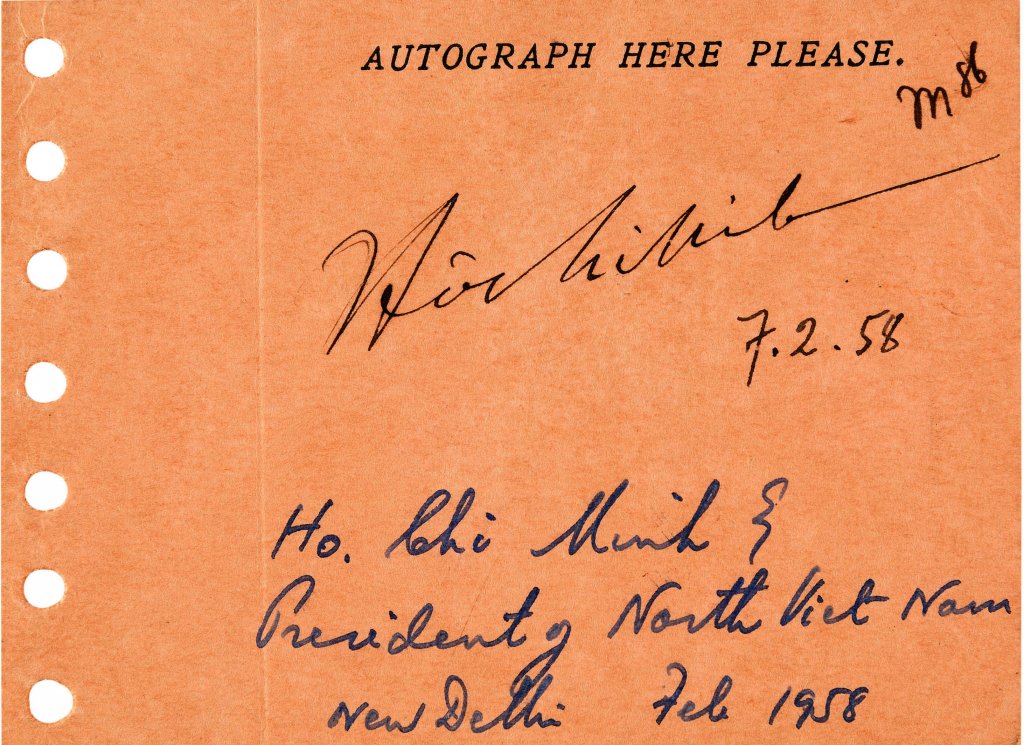 AUTOGRAPH HERE PLEASE.
M86
Hồ chí Minh
7.2.58
Ho. Chi Minh &
President of North Viet Nam
New Delhi Feb 1958